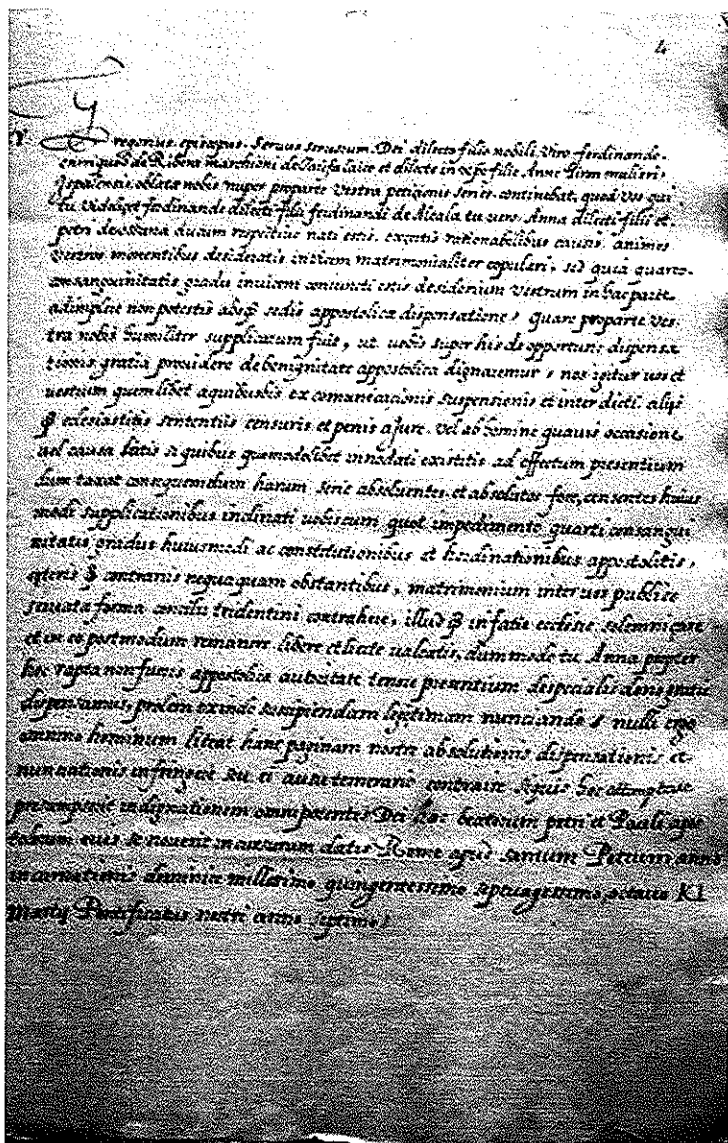 4
Gregorius episcopus. Servus servorum. Dei dilecto filio nobili. Viro ferdinando.
enrriquez de Ribera marchioni de laico et dilecte in xpo filie Anne Giron mulieri,
oblate nobis nuper pro parte vestra petitionis series. continebat, quod vos qui
tu videlicet ferdinande dilecti filii ferdinandi de Alcala tu vero. Anna dilecti filii et
petri de ossuna ducum respective nati estis. ex certis rationabilibus causis. animos
vestros moventibus desideratis invicem matrimonialiter copulari, sed quia quarto.
consanguinitatis gradu invicem coniuncti estis desiderium vestrum in hac parte.
adimplere non potestis absq sedis appostolica dispensatione, quare pro parte ves.
tra nobis humiliter supplicatum fuit, ut vobis super his de opportuna dispensa
tionis gratia providere de benignitate appostolica dignaremur, nos igitur vos et
vestrum quemlibet a quibusbis excomunicationis suspensionis et inter dicti. aliqi
q ecclesiastitis sententiis censuris et penis a jure. vel ab homine quavis occasione.
vel causa latis si quibus quomodolibet innodati existitis ad effectum presentium
dum taxat consequendum harum serie absolventes. et absolutos fore, censentes huius
modi supplicationibus inclinati vobiscum quot impedimento quarti consangui
nitatis gradus huiusmodi ac constitutionibus et hordinationibus appostolitis,
ceteris q contrariis nequaquam obstantibus, matrimonium inter vos publice
servata forma concilii tridentini contrahere, illud q in fatie ecclesie. solemniçare
et in eo postmodum remanere. libere et licite valeatis, dum modo tu Anna propter
hoc rapta non fueris appostolica autoritate tenore presentium de specialis dono gratie
dispensamus, prolem exinde suscipiendam legitimam nunciando, nulli ergo
omnino hominum liceat hanc paginam nostre absolutionis dispensationis et
nunciationis infringere seu ei ausu temerario contraire si quis hoc attemptare
presumpserit indignationem omnipotentis Dei hac beatorum petri et Pauli apos
tolorum eius se noverit incursurum datis Rome apud santum Petrum anno
incarnationis dominice millesimo quingentessimo septuagessimo, octavo Kl
martij Pontificatus nostri anno septimo,